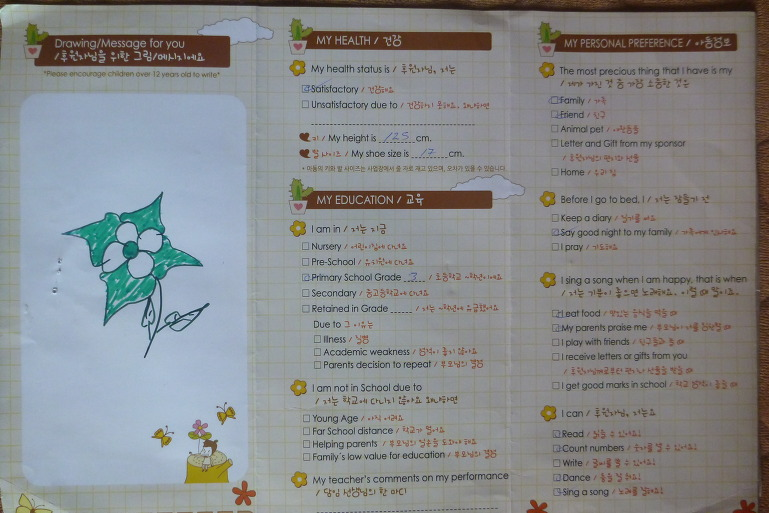 Drawing/Message for you
/후원자님을 위한 그림/메시지에요
*Please encourage children over 12 years old to write*
MY HEALTH / 건강
My health status is / 후원자님, 저는
Satisfactory / 건강해요
Unsatisfactory due to / 건강하지 못해요. 왜냐하면
키 / My height is 125 cm.
발 사이즈 / My shoe size is 17 cm.
* 아동의 키와 발 사이즈는 사업장에서 줄 자로 재고 있으며, 오차가 있을 수 있습니다
MY EDUCATION / 교육
I am in / 저는 지금
Nursery / 어린이집에 다녀요
Pre-School / 유치원에 다녀요
Primary School Grade 3 / 초등학교 ~학년이에요
Secondary / 중고등학교에 다녀요
Retained in Grade / 저는 ~학년에 유급했어요
Due to 그 이유는
Illness / 질병
Academic weakness / 성적이 좋지 않아요
Parents decision to repeat / 부모님의 결정
I am not in School due to
/ 저는 학교에 다니지 않아요 왜냐하면
Young Age / 아직 어려요
Far School distance / 학교가 멀어요
Helping parents / 부모님의 일손을 도와야 해요
Family's low value for education / 부모님의 결정
My teacher's comments on my performance
/ 담임 선생님의 한 마디
MY PERSONAL PREFERENCE / 아동정보
The most precious thing that I have is my
/ 제가 가진 것 중 가장 소중한 것은
Family / 가족
Friend / 친구
Animal pet / 애완동물
Letter and Gift from my sponsor
/ 후원자님의 편지와 선물
Home / 우리 집
Before I go to bed, I / 저는 잠들기 전
Keep a diary / 일기를 써요
Say good night to my family / 가족에게 인사해요
I pray / 기도해요
I sing a song when I am happy, that is when
/ 저는 기분이 좋으면 노래해요. 이럴 때 말이죠.
I eat food / 맛있는 음식을 먹을 때
My parents praise me / 부모님이 나를 칭찬할 때
I play with friends / 친구들과 놀 때
I receive letters or gifts from you
/ 후원자님께로부터 편지나 선물을 받을 때
I get good marks in school / 학교 성적이 좋을 때
I can / 후원자님, 저는요
Read / 읽을 수 있어요!
Count numbers / 숫자를 셀 수 있어요!
Write / 글씨를 쓸 수 있어요!
Dance / 춤을 잘 춰요!
Sing a song / 노래를 잘해요!